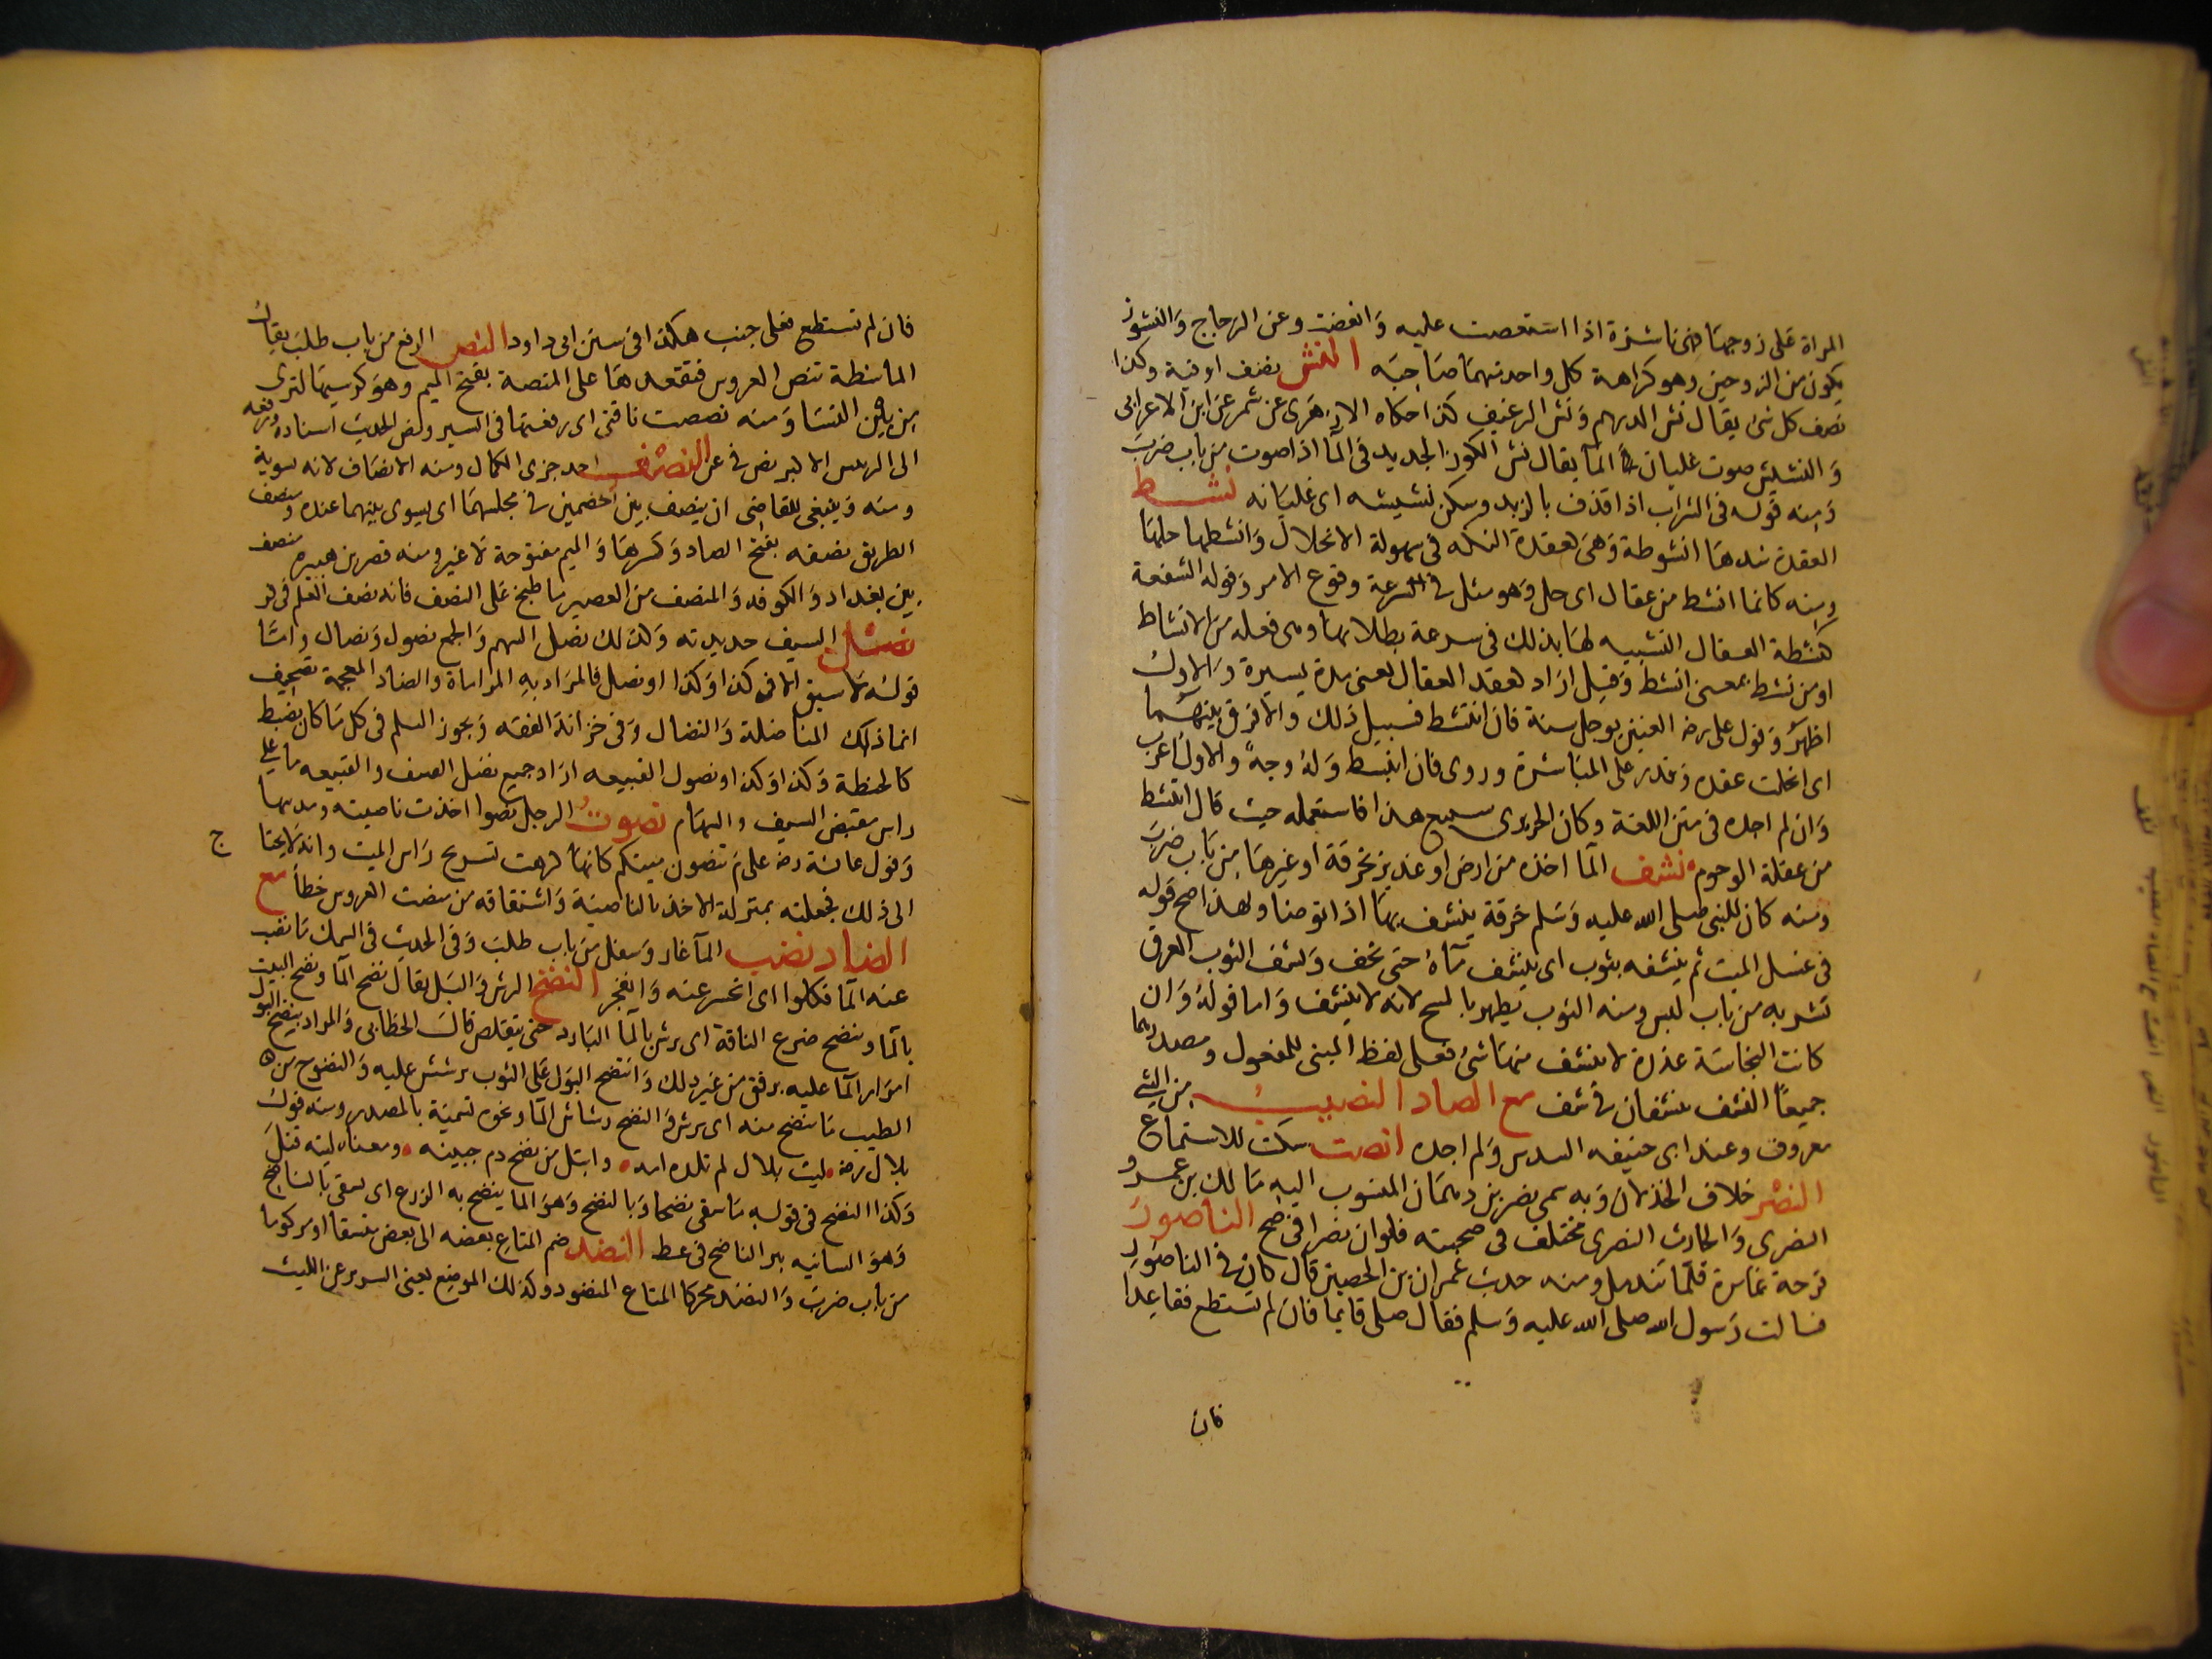 المراة على زوجها فهى ناشزة اذا استعصت عليه وابغضته وعن الزجاج والنشوز
يكون من الزوجين وهو كراهة كل واحد منهما صاحبه النش نصف اوقية وكذا
نصف كل شئ يقال نش الدرهم ونش الرغيف كذا حكاه الازهرى عن شمر عن ابن الاعرابى
والنشيش صوت غليان الما يقال نش الكوز الجديد فى الما اذا صوت من باب ضرب
ومنه قوله فى الشراب اذا قذف بالزبد وسكن نشيشه اى غليانه نشط
العقدة شدها انشوطة وهى كعقدة التكه فى سهولة الانحلال وانشطها حلها
ومنه كانما انشط من عقال اى حل وهو مثل فى السرعة وقوع الامر وقوله الشفعة
كنشطة العقال التشبيه لها بذلك فى سرعة بطلانها وهى فعلة من الانشاط
او من نشط بمعنى انشط وقيل اراد كعقد العقال يعنى مدة يسيرة والاول
اظهر وقول على رضه العنين يوجل سنة فان انتشط فسبيل ذلك والا فرق بينهما
اى انحلت عقده وقدر على المباشرة وروى فان انبسط وله وجه والاول اعرب
وان لم اجده فى متن اللغة وكان الحريرى سمع هذا فاستعمله حيث قال انتشط
من عقلة الوجوم نشف الما اخذه من ارض او غدير بخرقة او غيرها من باب ضرب
ومنه كان للنبى صلى الله عليه وسلم خرقة ينشف بها اذا توضا ولهذا صح قوله
فى غسل الميت ثم ينشفه بثوب اى ينشف ماؤه حتى تجف ونشف الثوب العرق
تشربه من باب لبس ومنه الثوب يطهر بالمسح لانه لا ينشف واما قوله وان
كانت النجاسة عذرة لا ينشف منها شئ فعلى لفظ المبنى للمفعول ومصدرهما
جميعا النشف ينشفان فى شف مع الصاد النصيب من الشئ
معروف وعند ابى حنيفه السدس ولم اجده انصت سكت للاستماع
النصر خلاف الخذلان وبه سمى نصر بن دهمان المنسوب اليه مالك بن عمرو
النصرى والحارث النصرى مختلف فى صحبته فلو ان نصرا فى ضح الناصور
قرحة غايرة قلما تندمل ومنه حديث عمران بن الحصين قال كان فى الناصور
فسالت رسول الله صلى الله عليه وسلم فقال صلى قايما فان لم تستطع فقاعدا
فان
فان لم تستطع فعلى جنب هكذا فى سنن ابى داود النص الرفع من باب طلب يقال
الماشطة تنص العروس فتقعدها على المنصة بفتح الميم وهو كرسيها لترى
من بين النسا ومنه نصصت ناقتى اى رفعتها فى السير ونص الحديث اسناده ورفعه
الى الريس الاكبر نص فى عن النصف احد جزى الكمال ومنه الانصاف لانه تسوية
ومنه وينبغى للقاضى ان ينصف بين الخصمين فى مجلسهما اى يسوى بينهما عنده ومنصف
الطريق نصفه بفتح الصاد وكسرها والميم مفتوحة لا غير ومنه قصر بن هبيرة منصف
بين بغداد والكوفه والمنصف من العصير ما طبخ على النصف فانه نصف القلم فى قر
نصل السيف حديدته وكذلك نصل السهم والجمع نصول ونصال واما
قوله لا سبق الا فى كذا وكذا او نصل فالمراد به المراماة والضاد المعجمة تصحيف
انما ذلك المناضلة والنضال وفى خزانة الفقه ويجوز السلم فى كل ما كان يضبط
كالحنطة وكذا وكذا ونصول القبيعه اراد جميع نصل السيف والقبيعه ما على
راس مقبض السيف والسهام نصوت الرجل نصوا اخذت ناصيته ومددتها
وقول عائشة رضه علىم تنصون ميتكم كانها كرهت تسريح راس الميت وانه لا يحتا
ج
الى ذلك فجعلته بمنزلة الاخذ بالناصية واشتقاقه من منصت العروس خطأ مع
الضاد نضب الما غار وسفل من باب طلب وفى الحديث فى السمك ما نضب
عنه الما فكلوا اى انحسر عنه وانفجر النضح الرش والبل يقال نضح الما ونضح البيت
بالما وينضح ضرع الناقة اى يرش بالما البارد حتى يتقلص قال الخطابى والمراد بنضح البول
امرار الما عليه برفق من غير دلك وانتضح البول على الثوب ترشش عليه والنضوح من
الطيب ما ينضح منه اى يرش والنضح رشاش الما ونحوه تسمية بالمصدر ومنه قول
بلال رضه ليت بلال لم تلده امه وابتل من نضح دم جبينه ومعناه ليته قتل
وكذا النضح فى قوله ما سقى نضحا وبالنضح وهو الما ينضح به الزرع اى يسقى بالناضح
وهو السانيه بير الناضح فى عط النضد ضم المتاع بعضه الى بعض متسقا او مركوما
من باب ضرب والنضد محركا المتاع المنضود وكذلك الموضع يعنى السرير عن الليث